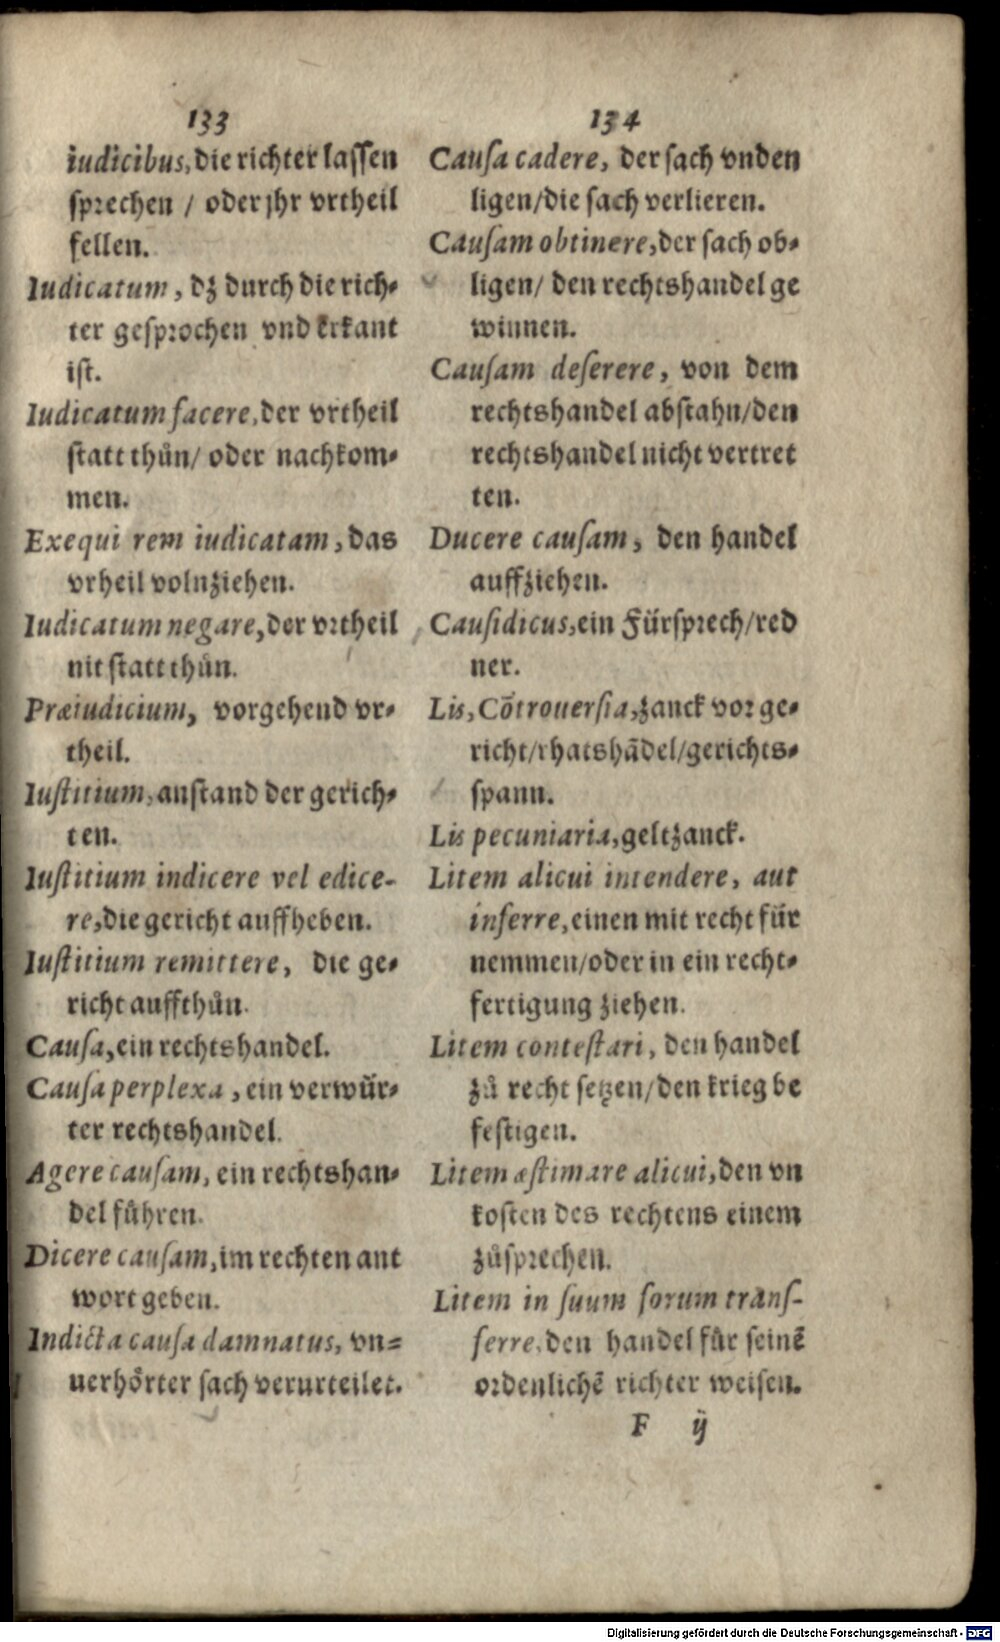 133
iudicibus, die richter lassen
sprechen / oder jhr vrtheil
fellen.
Iudicatum, dz durch die rich-
ter gesprochen vnd erkant
ist.
Iudicatum facere, der vrtheil
statt thůn/ oder nachkom-
men.
Exequi rem iudicatam, das
vrheil volnziehen.
Iudicatum negare, der vrtheil
nit statt thůn.
Præiudicium, vorgehend vr-
theil.
Iustitium, anstand der gerich-
ten.
Iustitium indicere vel edice-
re, die gericht auffheben.
Iustitium remittere, die ge-
richt auffthůn.
Causa, ein rechtshandel.
Causa perplexa, ein verwůr-
ter rechtshandel.
Agere causam, ein rechtshan-
del fůhren.
Dicere causam, im rechten ant
wort geben.
Indicta causa damnatus, vn-
uerhörter sach verurteilet.
134
Causa cadere, der sach vnden
ligen/die sach verlieren.
Causam obtinere, der sach ob-
ligen/ den rechtshandel ge
winnen.
Causam deserere, von dem
rechtshandel abstahn/den
rechtshandel nicht vertret
ten.
Ducere causam, den handel
auffziehen.
Causidicus, ein Fürsprech/red
ner.
Lis, Cõtrouersia, zanck vor ge-
richt/rhatshãdel/gerichts-
spann.
Lis pecuniaria, geltzanck.
Litem alicui intendere, aut
inferre, einen mit recht für
nemmen/oder in ein recht-
fertigung ziehen.
Litem contestari, den handel
zů recht setzen/den krieg be
festigen.
Litem æstimare alicui, den vn
kosten des rechtens einem
zůsprechen.
Litem in suum forum transf-
ferre, den handel für seinẽ
ordenlichẽ richter weisen.
F ij
Digitalisierung gefördert durch die Deutsche Forschungsgemeinschaft - DFG